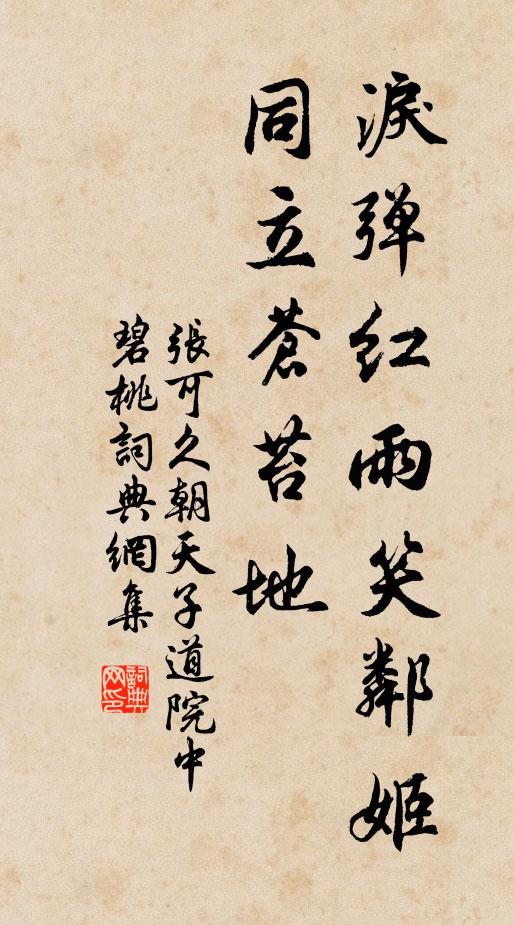 淚弹紅雨笑鄰姬
同立蒼苔地
張可久朝天子道院中
碧桃詞典網集
詞典网印